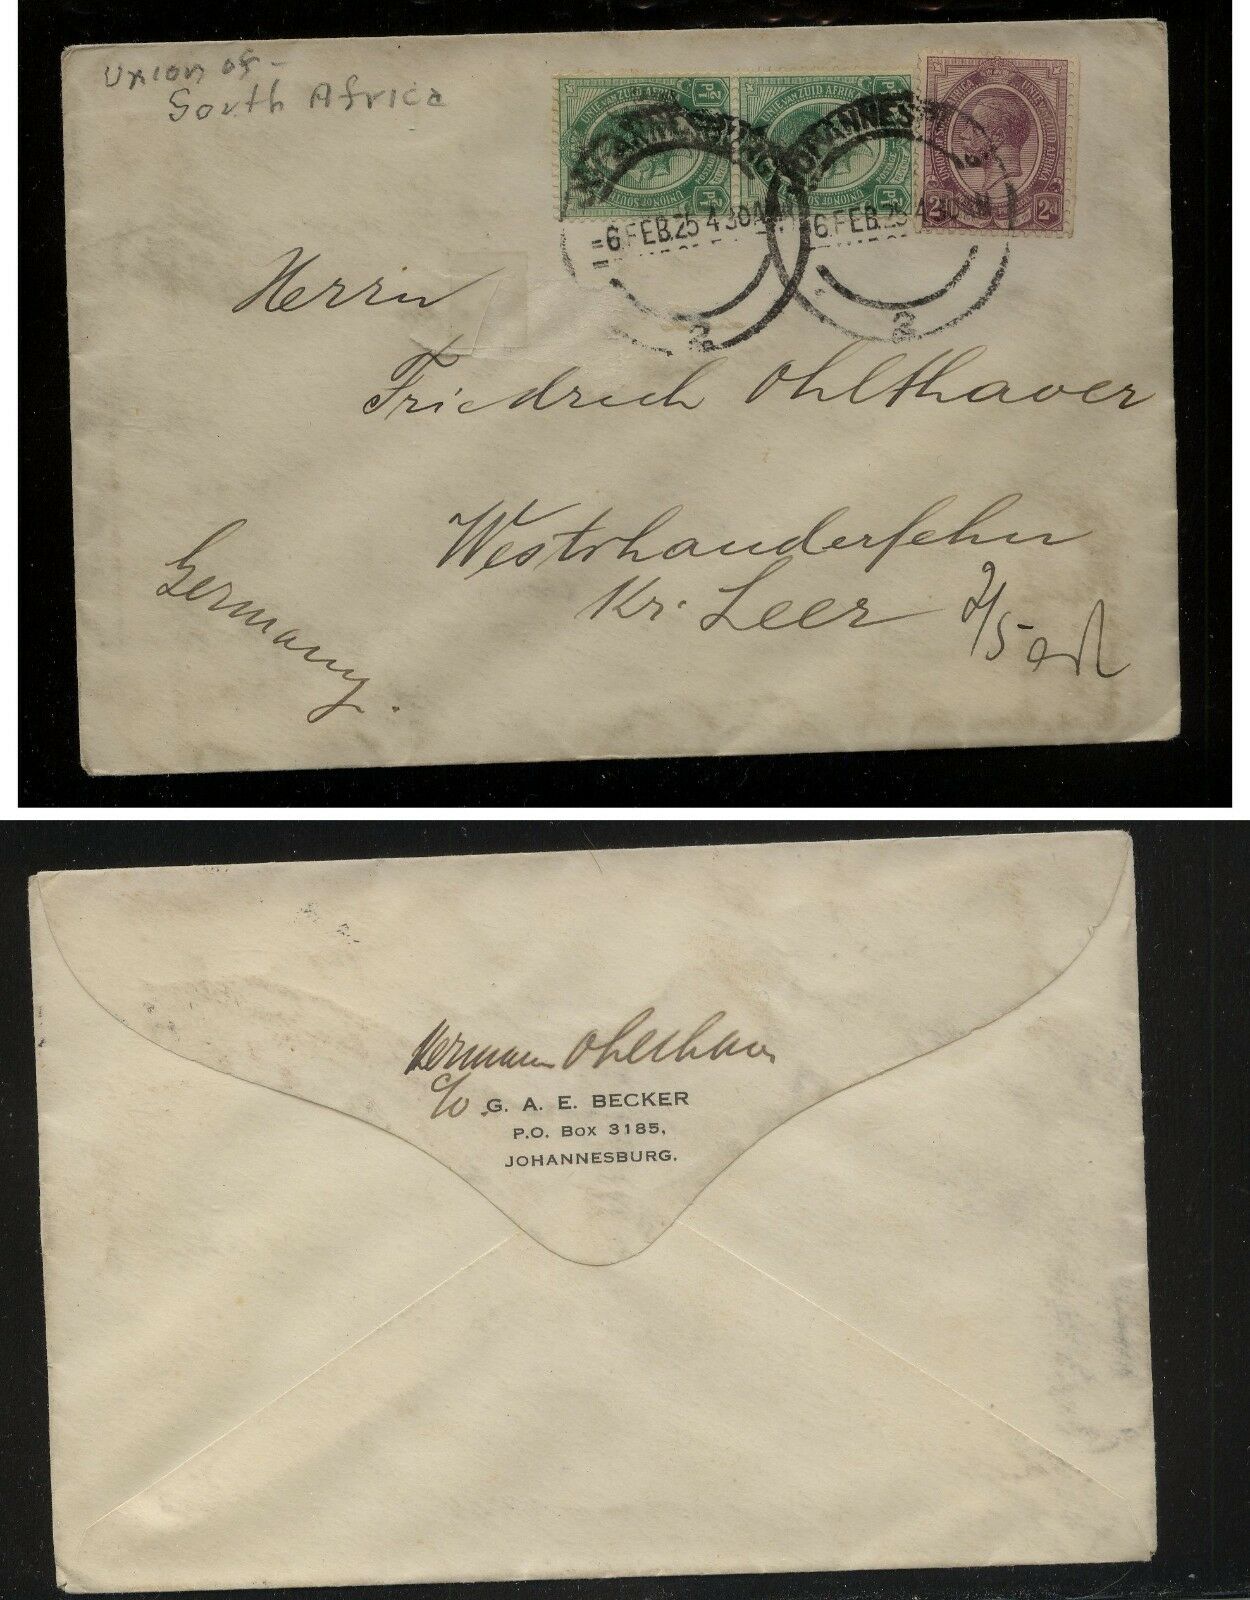 Union of -
South Africa
UNIE VAN ZUID AFRIKA
UNIE VAN ZUID AFRIKA
UNION OF SOUTH
UNION OF SOUTH
½d
½d
½d
½d
2d
2d
JOHANNESBURG
JOHANNESBURG
6 FEB 25 4 30 AM
6 FEB 25 4 30 AM
2
2
Herrn
Friedrich Ohlthaver
Westrhauderfehn
Kr. Leer
Germany.
Hermann Ohlthaver
c/o G. A. E. BECKER
P.O. BOX 3185,
JOHANNESBURG.